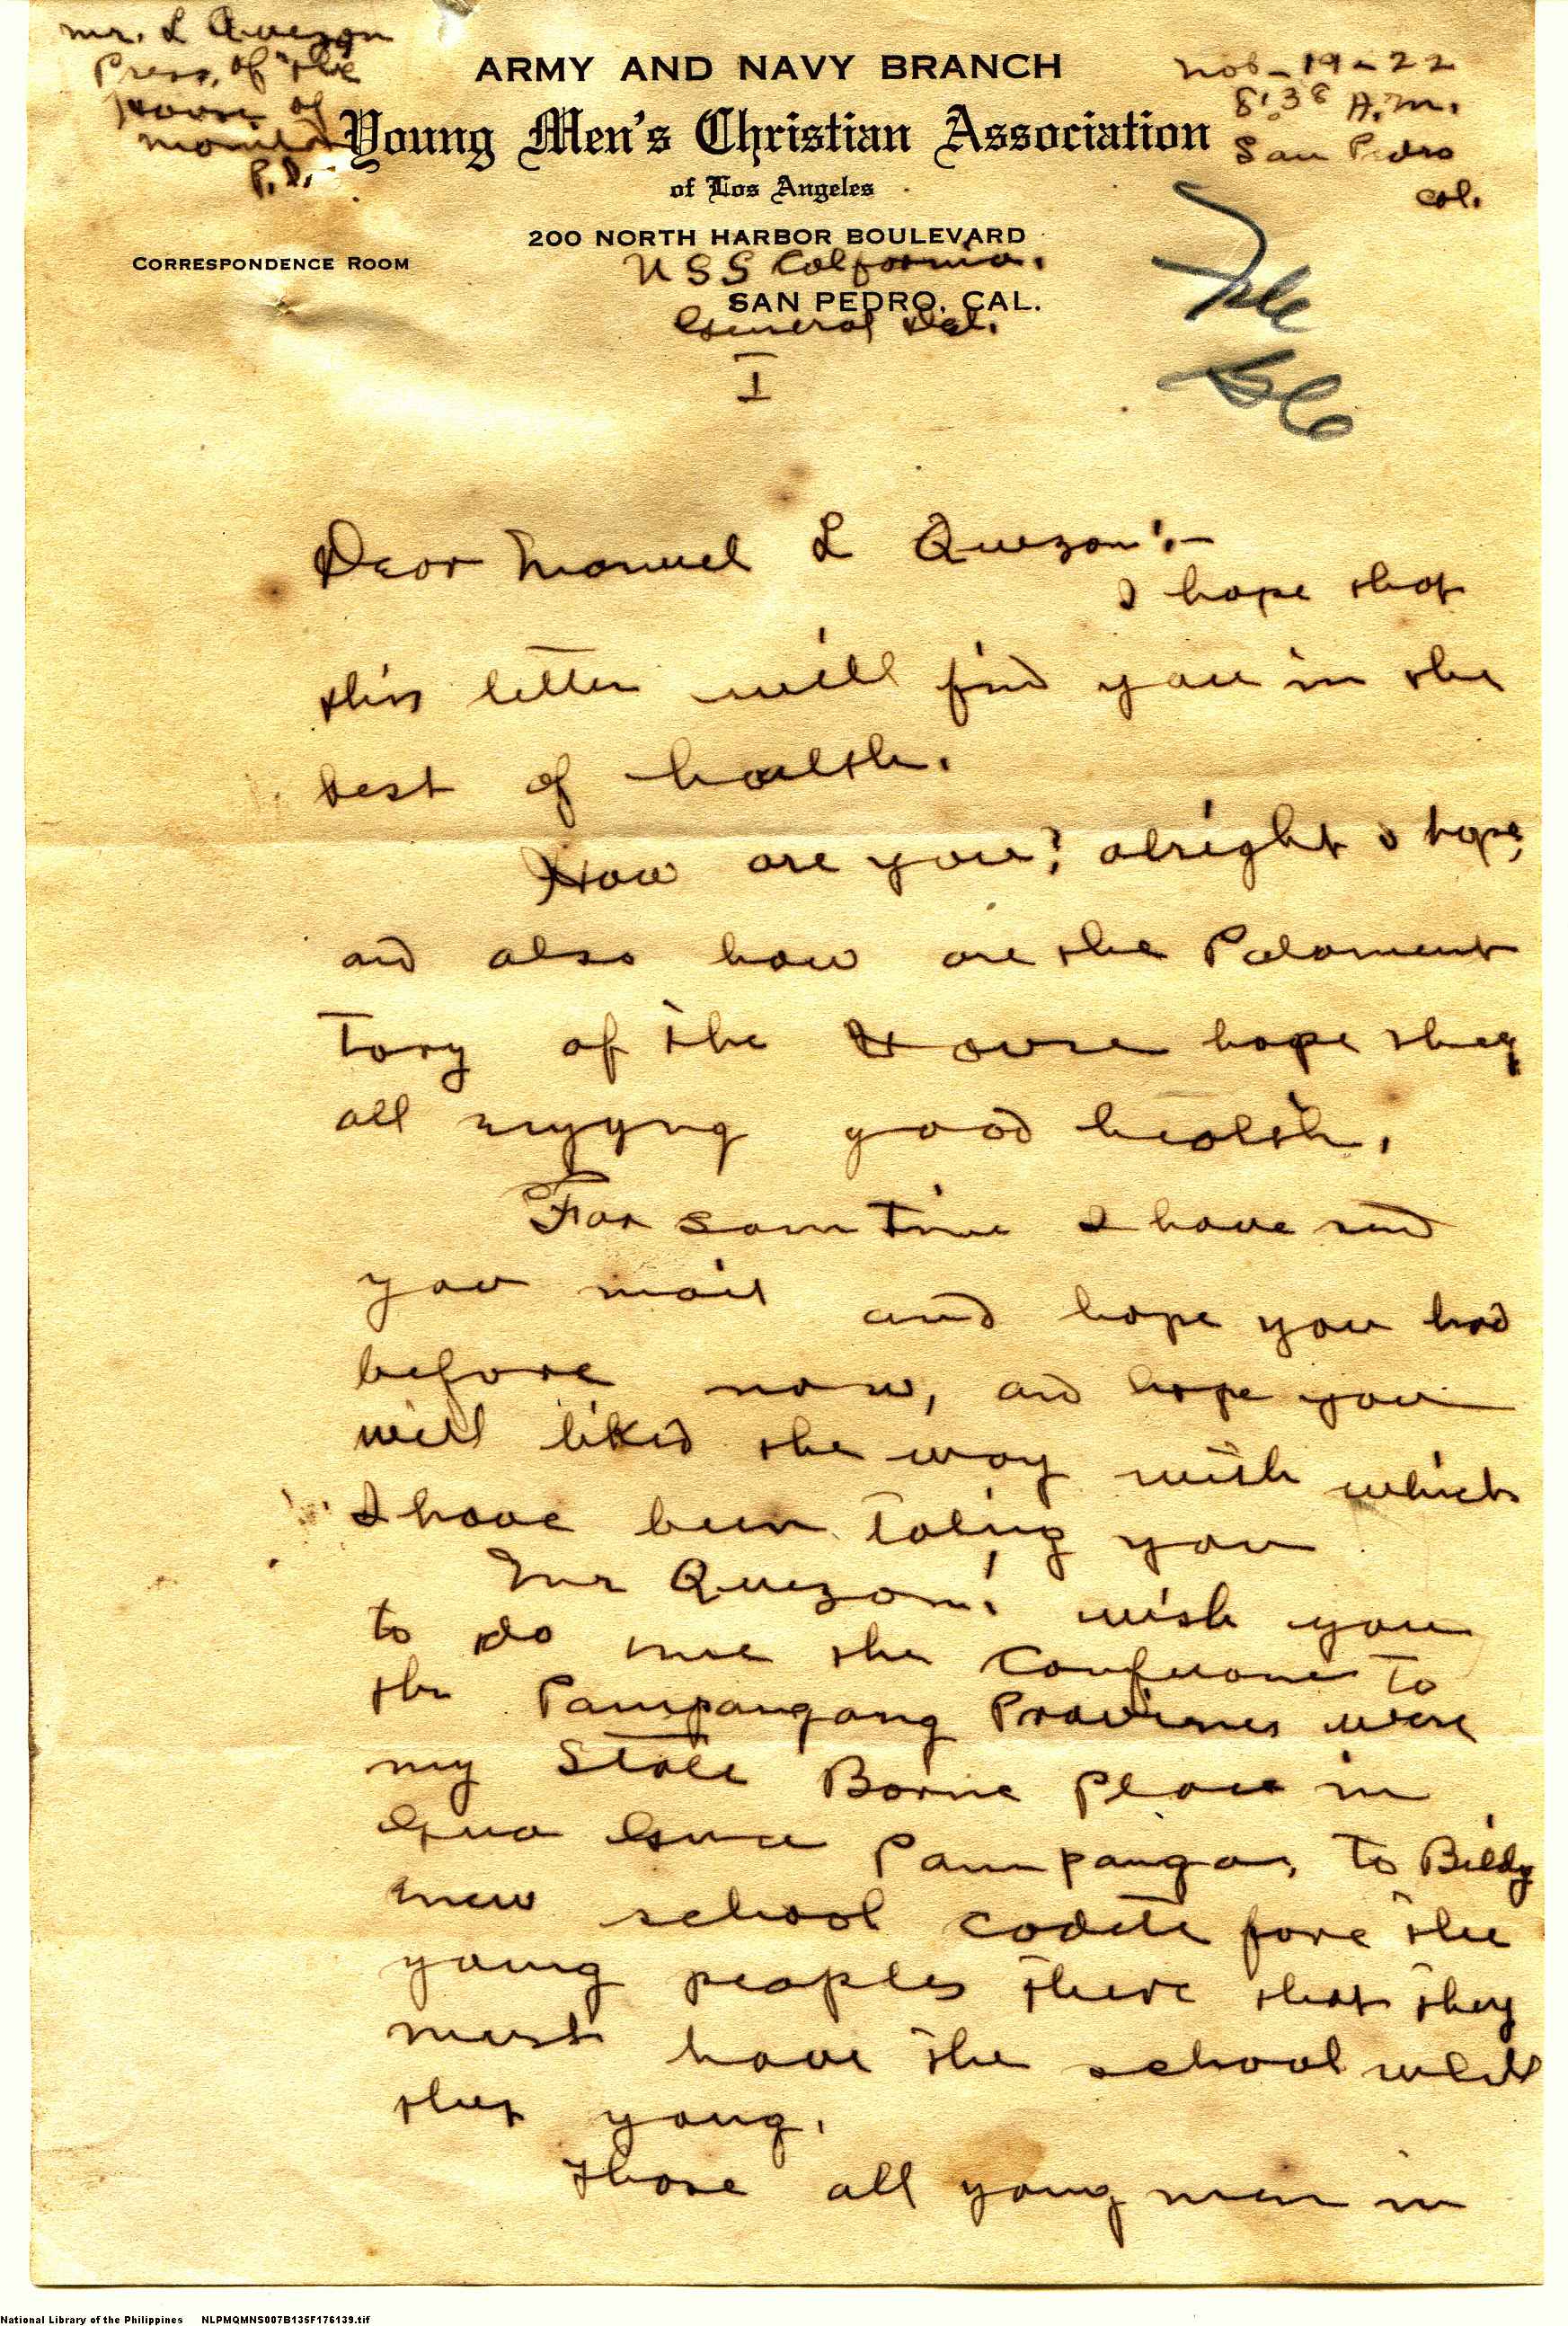 Mr. L Quezon
Press, of the
House of
Manila
P.I.
ARMY AND NAVY BRANCH
Young Men's Christian Association
of Los Angeles
200 NORTH HARBOR BOULEVARD
CORRESPONDENCE ROOM
USS Calfornia.
SAN PEDRO, CAL.
General Del.
Nob-19-22
8:38 A.M.
San Pedro
Cal.
I
Dear Manuel L Quezon:-
I hope that
this letter will find you in the
best of health.
How are you? alright I hope,
and also how are the Palament
Tary of the House hope they
all good health,
For som Time I have send
you mail and hope you had
before now, and hope you
will liked the way with which
I have been Taling you
Mr Quezon: wish you
to do me the to
the Pampangang Provinces were
my State Borne Place in
Pampanga, To Bildg
new school fore the
young peoples there that they
must have the school whill
they yong.
Those all yong men in
National Library of the Philippines NLPMQMNS007B135F176139.tif